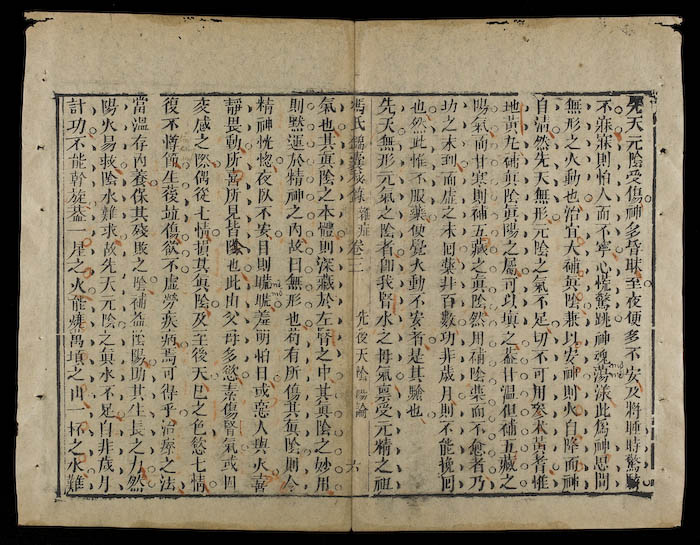 先天元陰受傷神多昏昧至夜便多不安及將睡時驚駭
不寐寐則怕人而不寧心慌驚跳神魂蕩漾此為神思間
無形之火動也治宜大補眞陰兼以安神則火自降而神
自清然先天無形元陰之氣不足切不可用參朮黃耆惟
地黃九補眞陰眞陽之屬可以填之葢甘溫但補五藏之
陽氣而甘寒則補五藏之眞陰然用補陰藥而不愈者乃
功之未到而虛之未囘藥非百數功非歲月則不能挽囘
也然此惟不服藥便覺火動不安者是其驗也
先天無形元氣之陰者卽我腎水之母氣稟受元精之祖
馮氏錦囊秘錄 雜症 卷二 先後天陰陽論 六
氣也其眞陰之本體則深藏於左腎之中其眞陰之妙用
則默運於精神之內故曰無形也苟有所傷其眞陰則令
精神恍惚夜臥不安目則䀮䀮羞明怕日或惡人與火喜
靜畏動所喜所見皆陰也此由父母多慾素傷腎氣或因
交感之際偶從七情損其眞陰及至後天巳之色慾七情
復不撙節生發傷欲不虛勞疾病焉可得乎治療之法
當溫存內養保其殘敗之陰補益陰陽助其生長之力然
陽火易救陰水難求故先天元陰之眞水不足自非歲月
計功不能斡旋葢一星之火能燒萬頃之山一杯之水難